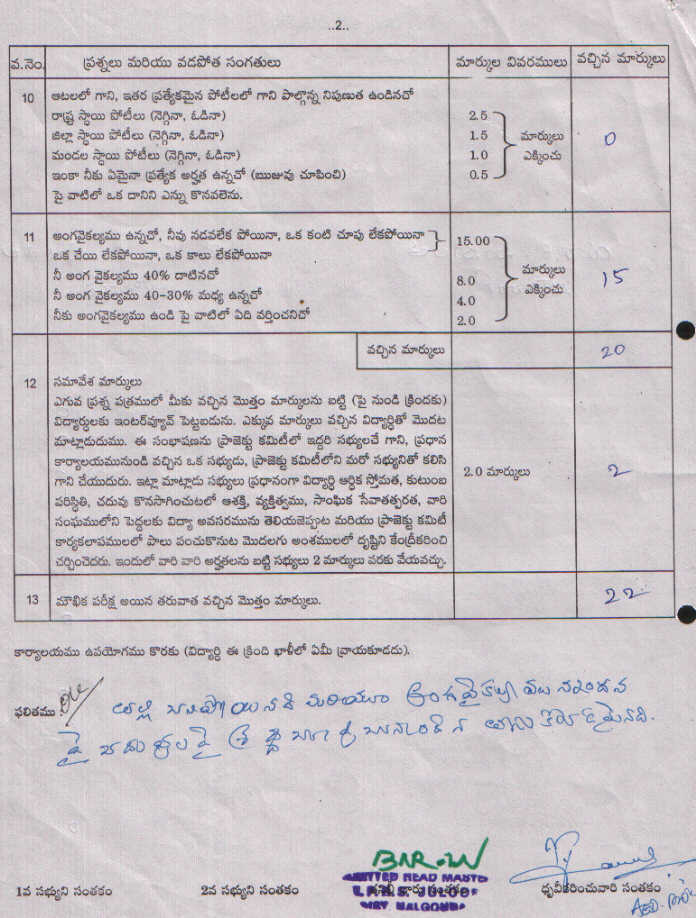 ..2..
వ.నెం. ప్రశ్నలు మరియు వడపోత సంగతులు మార్కుల వివరములు వచ్చిన మార్కులు
10 ఆటలలో గాని, ఇతర ప్రత్యేకమైన పోటీలలో గాని పాల్గొన్న నిపుణుత ఉండినచో
రాష్ట్ర స్థాయి పోటీలు (నెగ్గినా, ఓడినా) 2.5
జిల్లా స్థాయి పోటీలు (నెగ్గినా, ఓడినా) 1.5 మార్కులు 0
మండల స్థాయి పోటీలు (నెగ్గినా, ఓడినా) 1.0 ఎక్కించు
ఇంకా నీకు ఏమైనా ప్రత్యేక అర్హత ఉన్నచో (ఋజువు చూపించి) 0.5
పై వాటిలో ఒక దానిని ఎన్ను కొనవలెను.
11 అంగవైకల్యము ఉన్నచో, నీవు నడవలేక పోయినా, ఒక కంటి చూపు లేకపోయినా 15.00
ఒక చేయి లేకపోయినా, ఒక కాలు లేకపోయినా
నీ అంగ వైకల్యము 40% దాటినచో 8.0 మార్కులు 15
నీ అంగ వైకల్యము 40-30% మధ్య ఉన్నచో 4.0 ఎక్కించు
నీకు అంగవైకల్యము ఉండి పై వాటిలో ఏది వర్తించనిచో 2.0
వచ్చిన మార్కులు 20
12 సమావేశ మార్కులు
ఎగువ ప్రశ్న పత్రములో మీకు వచ్చిన మొత్తం మార్కులను బట్టి (పై నుండి క్రిందకు)
విద్యార్థులకు ఇంటర్‌వ్యూవ్ పెట్టబడును. ఎక్కువ మార్కులు వచ్చిన విద్యార్థితో మొదట
మాట్లాడుదుము. ఈ సంభాషణను ప్రాజెక్టు కమిటీలో ఇద్దరి సభ్యులచే గాని, ప్రధాన
కార్యాలయమునుండి వచ్చిన ఒక సభ్యుడు, ప్రాజెక్టు కమిటీలోని మరో సభ్యునితో కలిసి
గాని చేయుదురు. ఇట్లా మాట్లాడు సభ్యులు ప్రధానంగా విద్యార్థి ఆర్థిక స్తోమత, కుటుంబ 2.0 మార్కులు 2
పరిస్థితి, చదువు కొనసాగించుటలో ఆశక్తి, వ్యక్తిత్వము, సాంఘిక సేవాతత్పరత, వారి
సంఘములోని పెద్దలకు విద్యా అవసరమును తెలియజెప్పుట మరియు ప్రాజెక్టు కమిటీ
కార్యకలాపములలో పాలు పంచుకొనుట మొదలగు అంశములలో దృష్టిని కేంద్రీకరించి
చర్చించెదరు. ఇందులో వారి వారి అర్హతలను బట్టి సభ్యులు 2 మార్కులు వరకు వేయవచ్చు.
13 మౌఖిక పరీక్ష అయిన తరువాత వచ్చిన మొత్తం మార్కులు. 22
కార్యాలయము ఉపయోగము కొరకు (విద్యార్థి ఈ క్రింది ఖాళీలో ఏమీ వ్రాయకూడదు).
ఫలితము : తల్లి మరియు
పై
1వ సభ్యుని సంతకం 2వ సభ్యుని సంతకం సంతకం ధృవీకరించువారి సంతకం